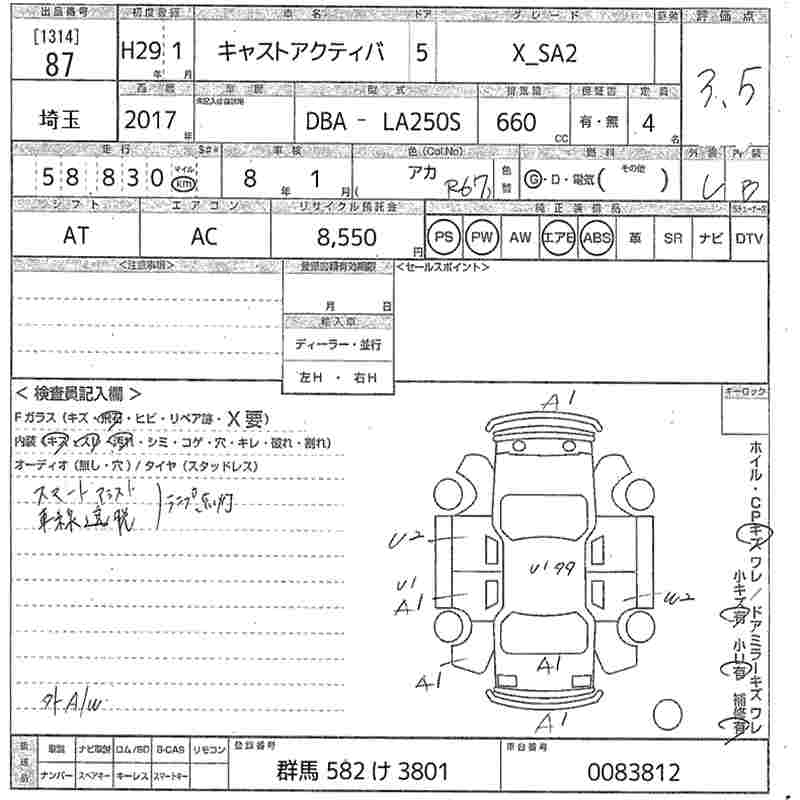 出品番号 初度登録 車名 ドア グレード 評価点
[1314]
87 H29 1 キャストアクティバ 5 X_SA2 3.5
年 月
西暦 車歴 型式 排気量 保証書 定員
埼玉 2017年 DBA - LA250S 660 cc 有・無 4名
走行 車検 色(Col.No) 燃料 外装 内装
58830 マイル km 8年 1月 アカ R67 色替 G・D・電気( その他 ) B
シフト エアコン リサイクル預託金 純正装備品
AT AC 8,550円 PS PW AW エアB ABS 革 SR ナビ DTV
<注意事項> <セールスポイント>
月 日
輸入車
ディーラー・並行
左H ・ 右H
< 検査員記入欄 > キーロック
Fガラス(キズ・飛石・ヒビ・リペア跡・X要)
内装(キズ・スレ・汚れ・シミ・コゲ・穴・キレ・破れ・割れ)
オーディオ(無し・穴)/タイヤ(スタッドレス)
スマートアシスト
車線逸脱 ランプ点灯
外A/W
A1
U2
U1 99
U1
A1
W2
A1
A1
A1
ホイル・CPキズ ワレ/ドアミラーキズ ワレ
小キズ有 小U有 補修有
取説 ナビ取説 ロム/SD B-CAS リモコン 登録番号 車台番号
ナンバー スペアキー キーレス スマートキー 群馬 582 け 3801 0083812